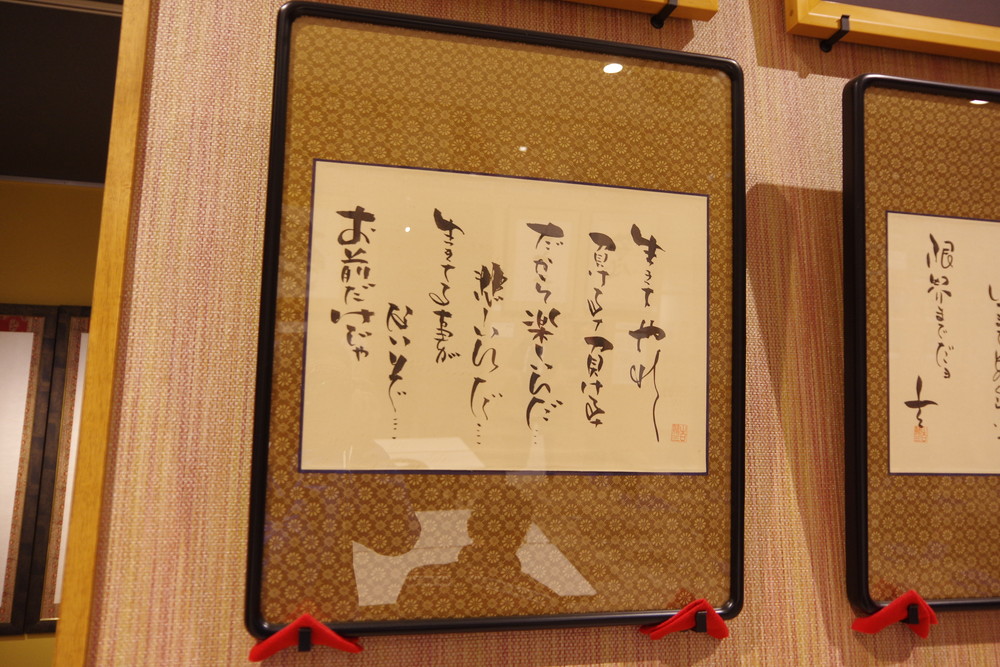 お前だけじゃ
ないぞ…
生きてる事が
悲しいんだ…
だから楽しいんだ…
負けるな負けるな
生きてやれ
限界